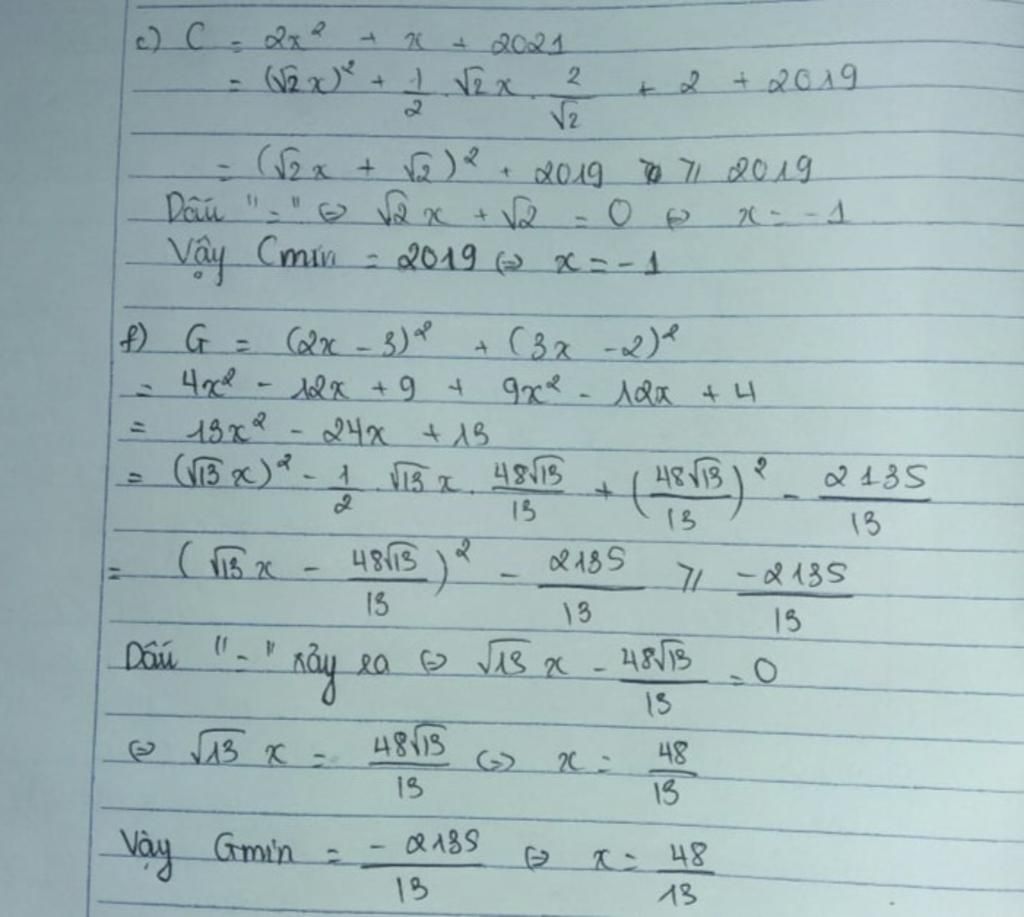 c) C = 2x² + x + 2021
= (√2x)² + 1/2 . √2x . 2/√2 + 2 + 2019
= (√2x + √2)² + 2019 ≥ 2019
Dấu "=" ⇔ √2x + √2 = 0 ⇔ x = -1
Vậy Cmin = 2019 ⇔ x = -1
f) G = (2x - 3)² + (3x - 2)²
= 4x² - 12x + 9 + 9x² - 12x + 4
= 13x² - 24x + 13
= (√13x)² - 1/2 . √13x . 48√13/13 + (48√13/13)² - 2135/13
= (√13x - 48√13/13)² - 2135/13 ≥ -2135/13
Dấu "=" xảy ra ⇔ √13x - 48√13/13 = 0
⇔ √13x = 48√13/13 ⇔ x = 48/13
Vậy Gmin = -2135/13 ⇔ x = 48/13